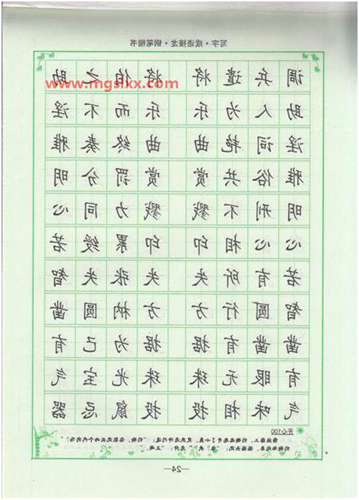 写字·成语接龙·钢笔楷书
www.mgslkx.com
调兵遣将 将伯之助
助人为乐 乐而不淫
淫词艳曲 曲终奏雅
雅俗共赏 赏罚分明
明刑不戮 戮力同心
心心相印 印累绶若
若有所失 失张失智
智圆行方 方枘圆凿
凿凿有据 据为己有
有眼无珠 珠光宝气
气味相投 投鼠忌器
开心100
—24—